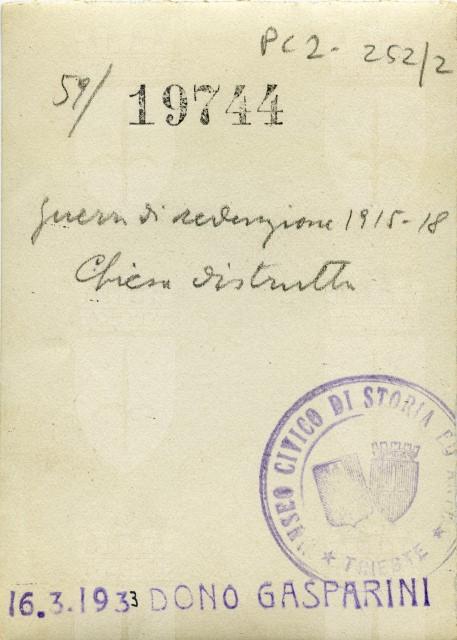 PC2- 252/2
59/ 19744
guerra di redenzione 1915-18
Chiesa distrutta
MUSEO CIVICO DI STORIA ED
★ TRIESTE ★
16.3.1933 DONO GASPARINI